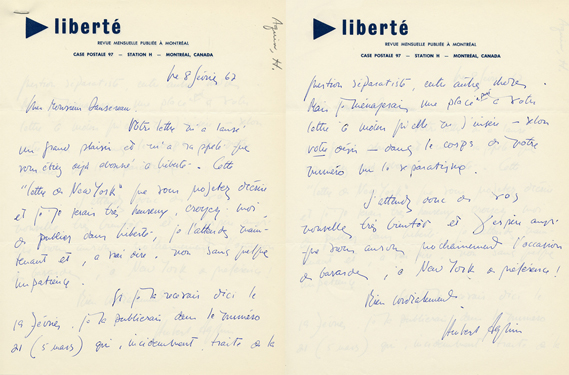 liberté
REVUE MENSUELLE PUBLIÉE À MONTRÉAL
CASE POSTALE 97 – STATION H – MONTRÉAL, CANADA
Aquin, H.
le 8 février 62
Cher Monsieur
Votre lettre m'a causé
un grand plaisir et m'a rappelé que
vous étiez abonné à Liberté. Cette
"lettre de New York" que vous projetez d'écrire
et que je serais très heureux, croyez-moi,
de publier dans Liberté, je l'attends main-
tenant et, à vrai dire, non sans quelque
impatience.
Si je la recevais d'ici le
19 février, je la publierais dans le numéro
21 (5 mars) qui, incidemment, traite de la
liberté
REVUE MENSUELLE PUBLIÉE À MONTRÉAL
CASE POSTALE 97 – STATION H – MONTRÉAL, CANADA
question séparatiste, entre autres choses.
Mais je ménagerais une place à votre
lettre à moins qu'elle ne s'insère – selon
votre désir – dans le corps de notre
numéro sur le séparatisme.
J'attends donc de vos
nouvelles très bientôt et j'espère aussi
que nous aurons prochainement l'occasion
de bavarder, à New York de préférence!
Bien cordialement.
Hubert Aquin